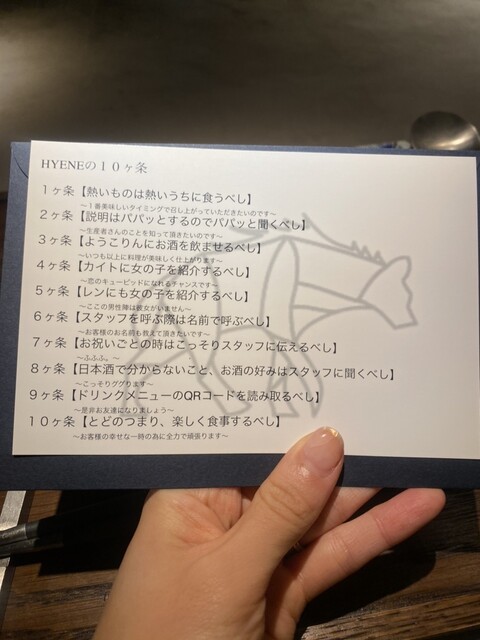 HYENEの１０ヶ条
１ヶ条【熱いものは熱いうちに食うべし】
～１番美味しいタイミングで召し上がっていただきたいのです～
２ヶ条【説明はパパッとするのでパパッと聞くべし】
～生産者さんのことを知って頂きたいのです～
３ヶ条【ようこりんにお酒を飲ませるべし】
～いつも以上に料理が美味しく仕上がります～
４ヶ条【カイトに女の子を紹介するべし】
～恋のキューピッドになれるチャンスです～
５ヶ条【レンにも女の子を紹介するべし】
～ここの男性陣は彼女がいません～
６ヶ条【スタッフを呼ぶ際は名前で呼ぶべし】
～お客様のお名前も教えて頂きたいです～
７ヶ条【お祝いごとの時はこっそりスタッフに伝えるべし】
～ふふふ。～
８ヶ条【日本酒で分からないこと、お酒の好みはスタッフに聞くべし】
～こっそりググります～
９ヶ条【ドリンクメニューのQRコードを読み取るべし】
～是非お友達になりましょう～
１０ヶ条【とどのつまり、楽しく食事するべし】
～お客様の幸せな一時の為に全力で頑張ります～